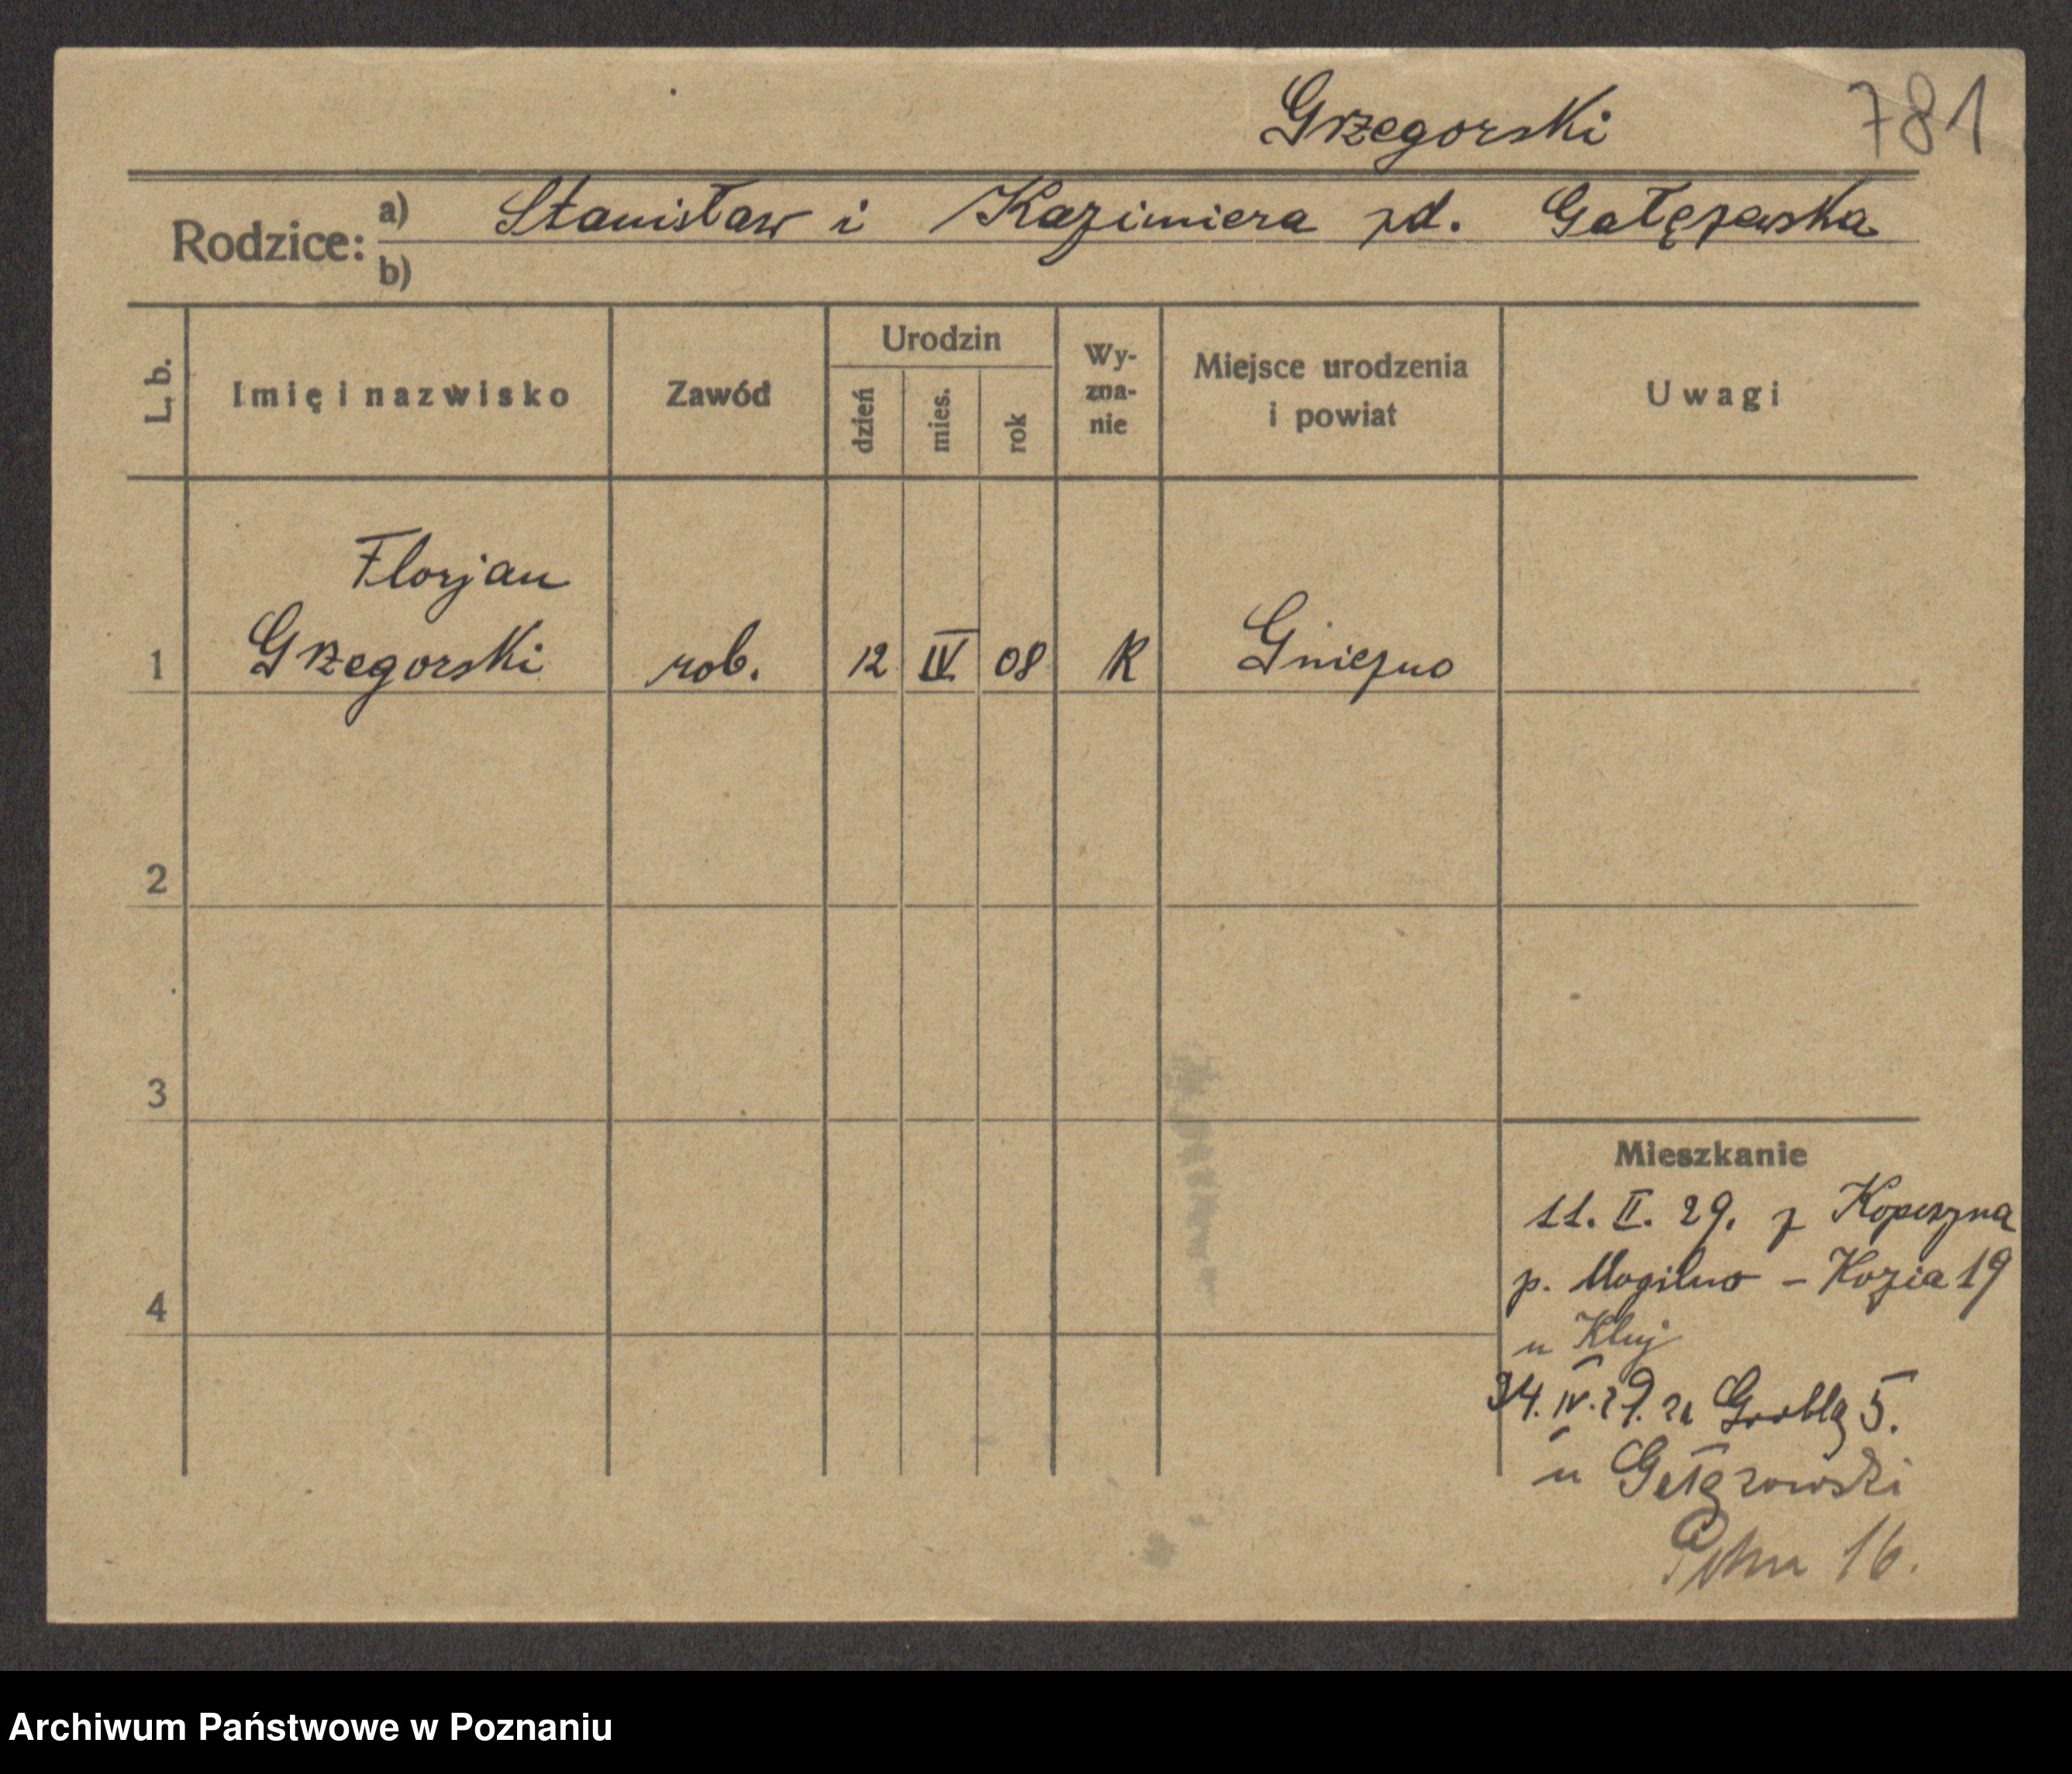 Grzegorski 781
Rodzice: a) Stanisław i Kazimiera zd. Gałęzewska
b)
L. b. Imię i nazwisko Zawód Urodzin dzień mies. rok Wy-zna-nie Miejsce urodzenia i powiat Uwagi
Florjan
1 Grzegorski rob. 12 IV 08 K Gniezno
2
3
Mieszkanie
11. II. 29. z
p. Mogilno – Kozia 19
4
u Kluj
24. IV. 29. Grobla 5.
u
16.
Archiwum Państwowe w Poznaniu